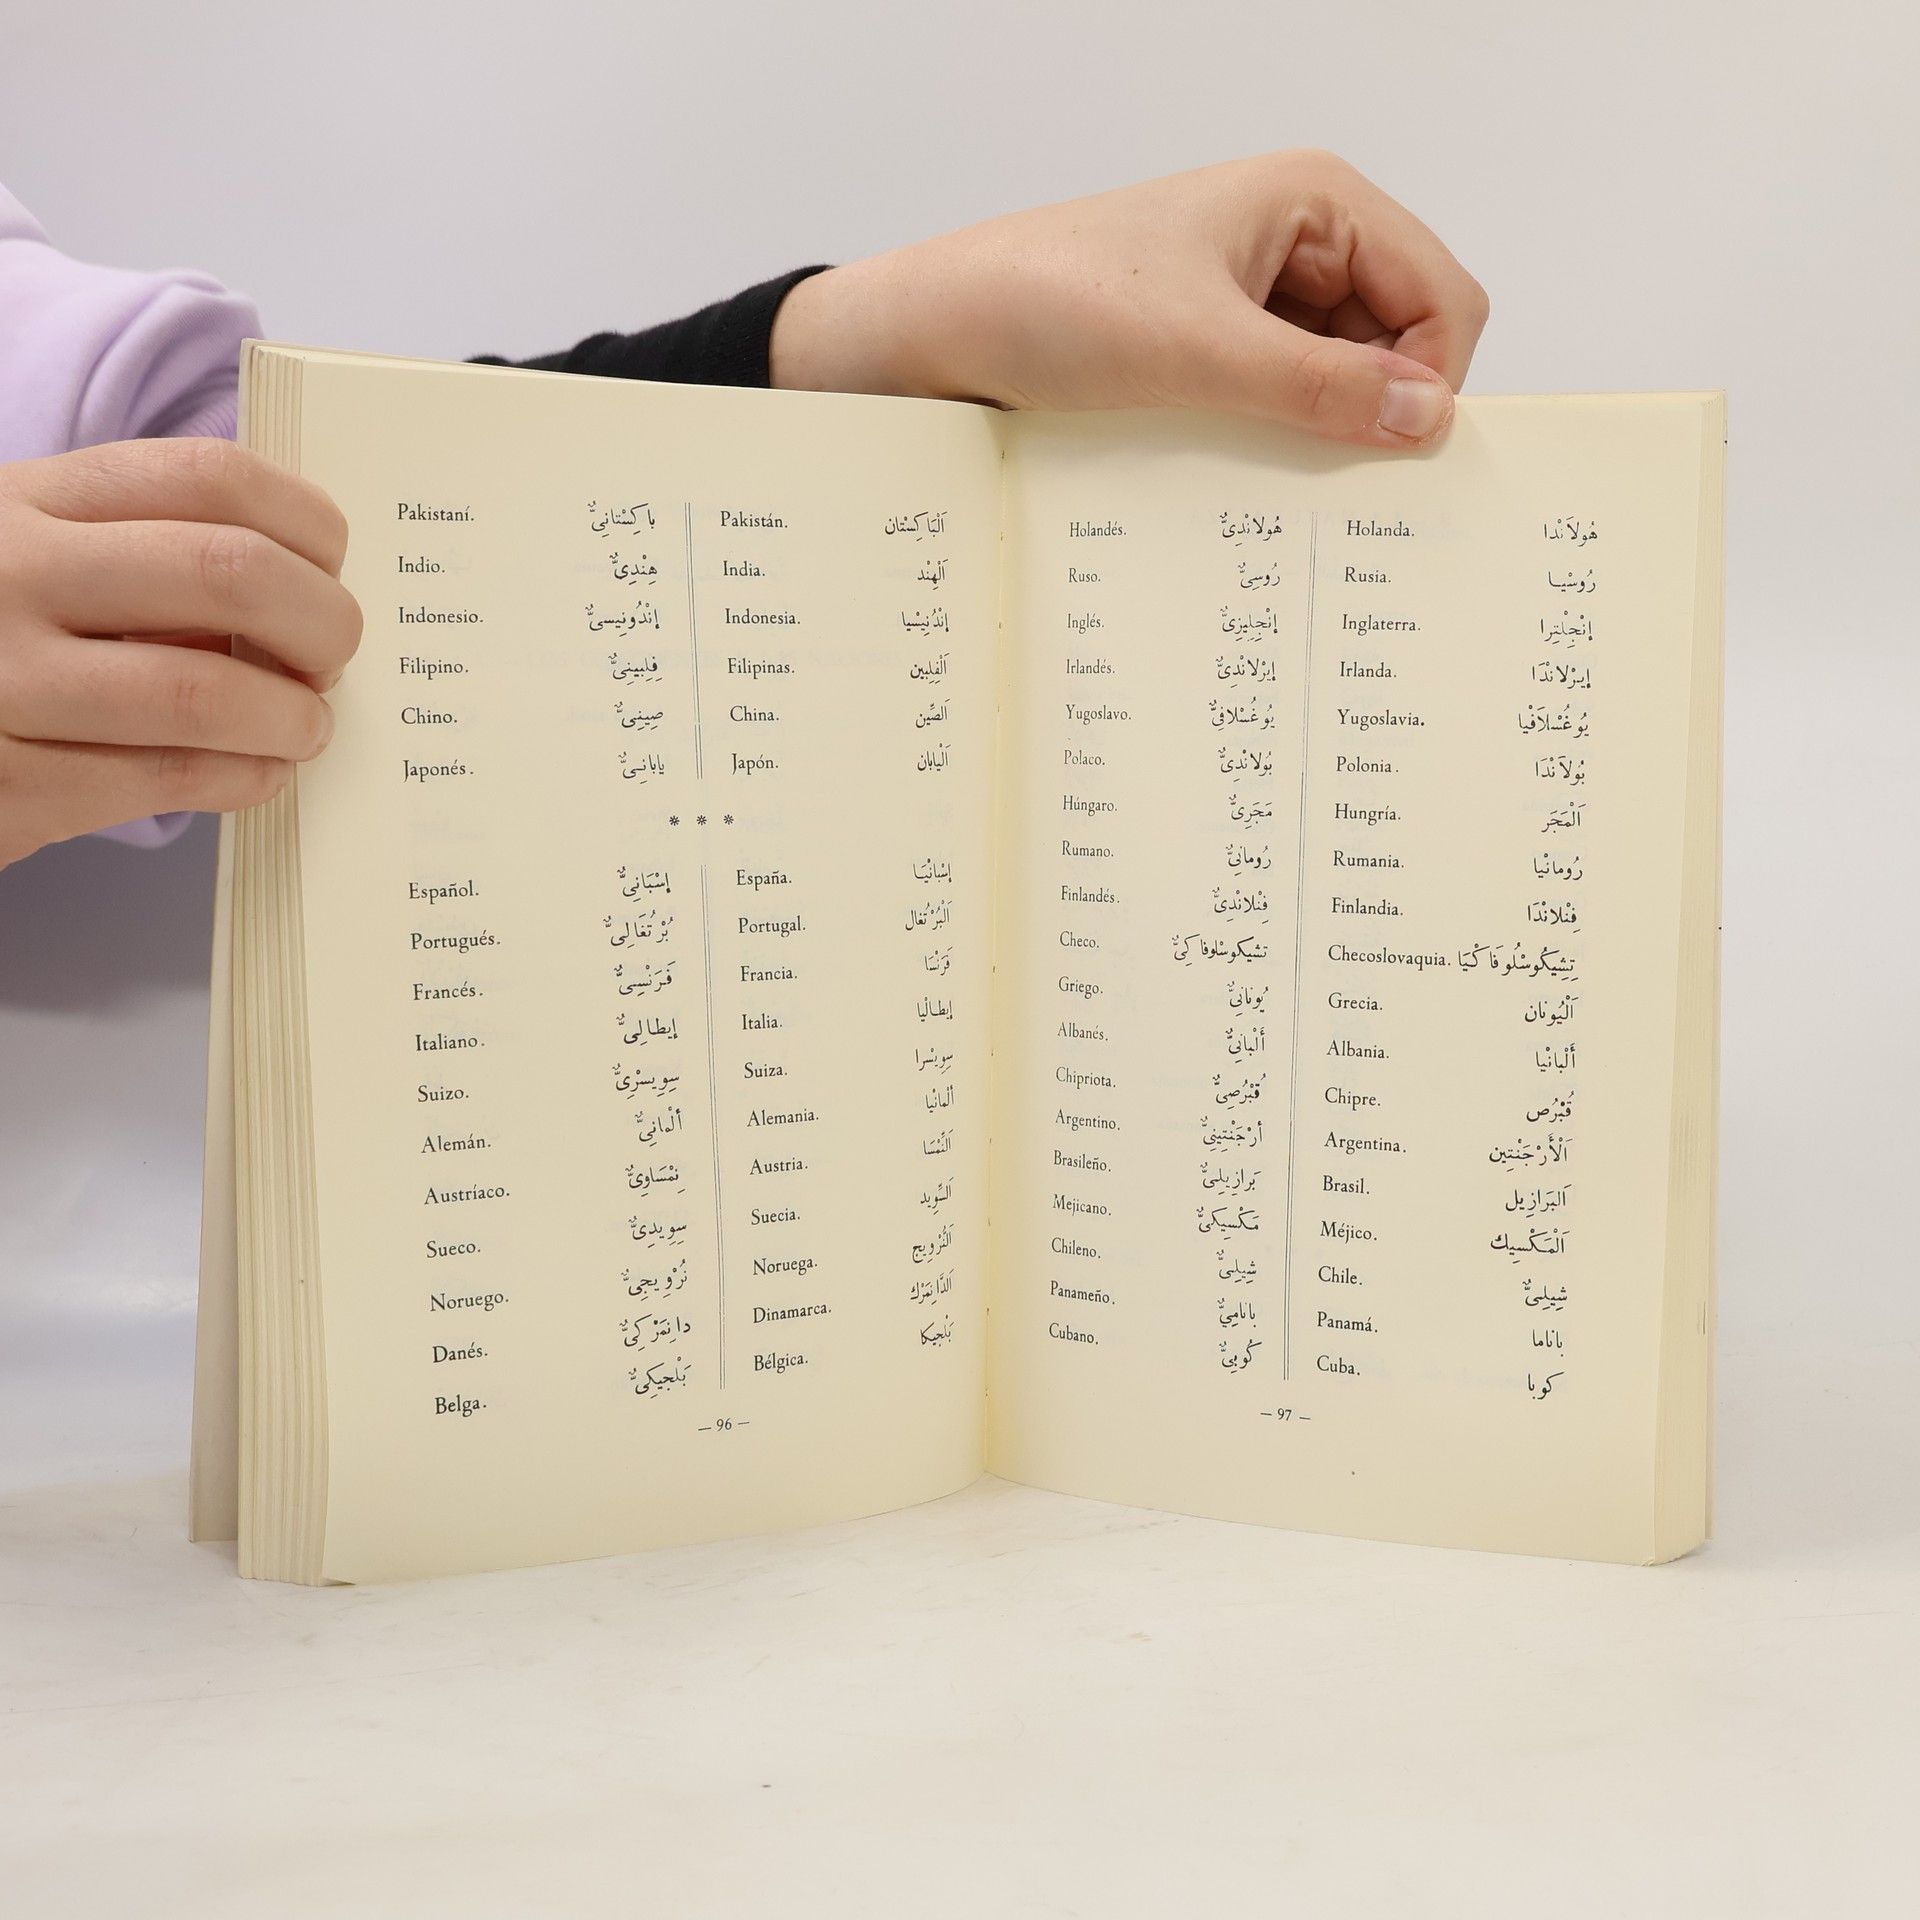 Pakistaní. باكِسْتانِيٌّ Pakistán. اَلْبَاكِسْتان
Indio. هِنْدِيٌّ India. اَلْهِنْد
Indonesio. إنْدُونِيسيٌّ Indonesia. إنْدُنِيْسْيا
Filipino. فِلِبِينِيٌّ Filipinas. اَلْفِلِبِين
Chino. صِينِيٌّ China. اَلصِّين
Japonés. يابانِيٌّ Japón. اَلْيابان
* * *
Español. إسْبَانِيٌّ España. إسْبانْيَا
Portugués. بُرْتُغَالِيٌّ Portugal. اَلْبُرْتُغال
Francés. فَرَنْسِيٌّ Francia. فَرَنْسَا
Italiano. إيطالِيٌّ Italia. إيطالْيا
Suizo. سِوِيسْرِيٌّ Suiza. سِوِيْسْرا
Alemán. ألْمانِيٌّ Alemania. ألْمانْيا
Austríaco. نِمْسَاوِيٌّ Austria. اَلنِّمْسَا
Sueco. سِوِيدِيٌّ Suecia. اَلسِّوِيد
Noruego. نُرْوِيجِيٌّ Noruega. اَلنُّرْوِيج
Danés. دانِمَرْكِيٌّ Dinamarca. اَلدَّانِمَرْك
Belga. بَلْجِيكِيٌّ Bélgica. بَلْجِيكا
— 96 —
Holandés. هُولانْدِيٌّ Holanda. هُولَانْدا
Ruso. رُوسِيٌّ Rusia. رُوسْيا
Inglés. إنْجِلِيزِيٌّ Inglaterra. إنْجِلْتِرا
Irlandés. إيرْلانْدِيٌّ Irlanda. إيرْلانْدَا
Yugoslavo. يُوغُسْلافِيٌّ Yugoslavia. يُوغُسْلَافْيا
Polaco. بُولانْدِيٌّ Polonia. بُولَانْدَا
Húngaro. مَجَرِيٌّ Hungría. اَلْمَجَر
Rumano. رُومانِيٌّ Rumania. رُومانْيا
Finlandés. فِنْلانْدِيٌّ Finlandia. فِنْلانْدَا
Checo. تشيكوسْلوفاكِيٌّ Checoslovaquia. تِشِيكُوسْلُوفَاكْيَا
Griego. يُونانِيٌّ Grecia. اَلْيُونان
Albanés. أَلْبانِيٌّ Albania. أَلْبانْيا
Chipriota. قُبْرُصِيٌّ Chipre. قُبْرُص
Argentino. أرْجَنْتِينِيٌّ Argentina. اَلْأَرْجَنْتِين
Brasileño. بَرازِيلِيٌّ Brasil. اَلبَرازِيل
Mejicano. مَكْسِيكيٌّ Méjico. اَلْمَكْسِيك
Chileno. شِيلِيٌّ Chile. شِيلِيٌّ
Panameño. بانامِيٌّ Panamá. باناما
Cubano. كُوبِيٌّ Cuba. كوبا
— 97 —